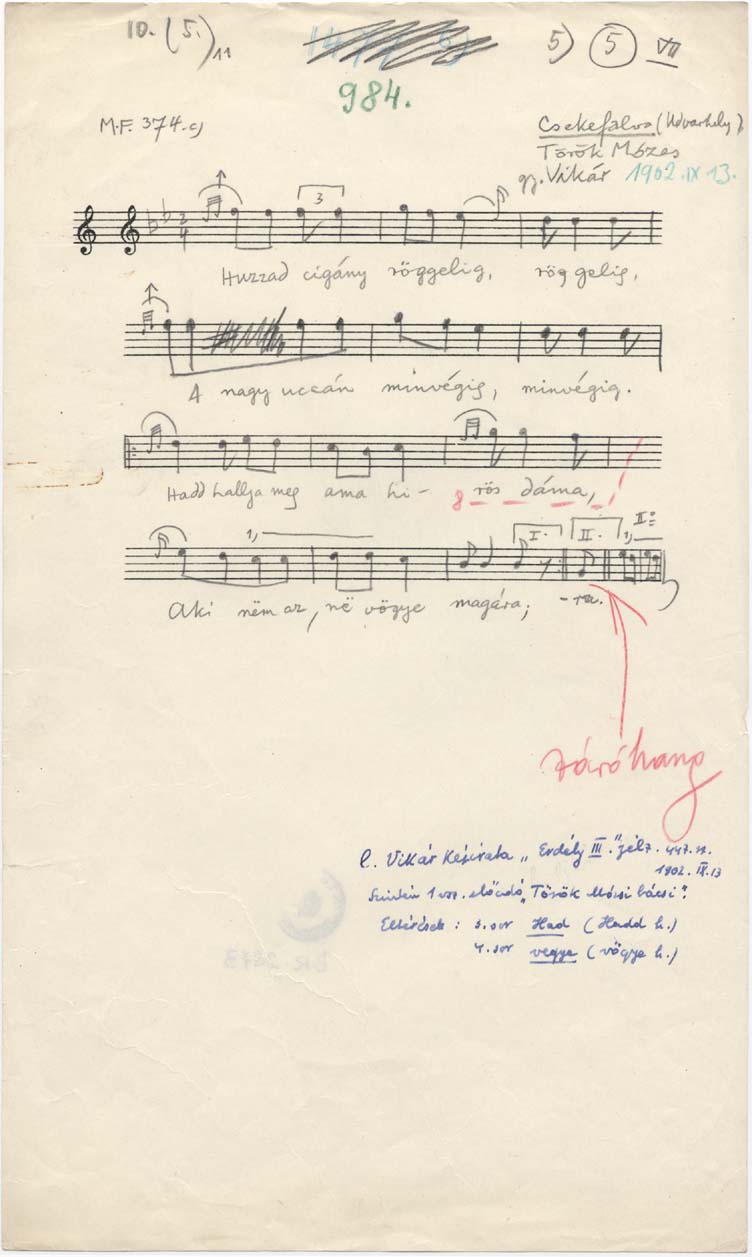 10. (5.) 11
5) 5 VII
984.
M.F. 374.c)
Csekefalva (Udvarhely)
Török Mózes
gy. Vikár 1902.IX 13.
2
4
3
Huzzad cigány röggelig, röggelig,
A nagy uccán minvégig, minvégig.
Hadd hallja meg ama hi- rös dáma,
8
1, I. II. 1, II:
Aki nëm az, në vögye magára; -ra.
záróhang
l. Vikár kézirata „Erdély III." jelz. 447.sz.
1902. IX.13
Szintén 1 vsz. előadó „Török Mózsi bácsi".
Eltérések: 3. sor Had (Hadd h.)
4. sor vegye (vögye h.)